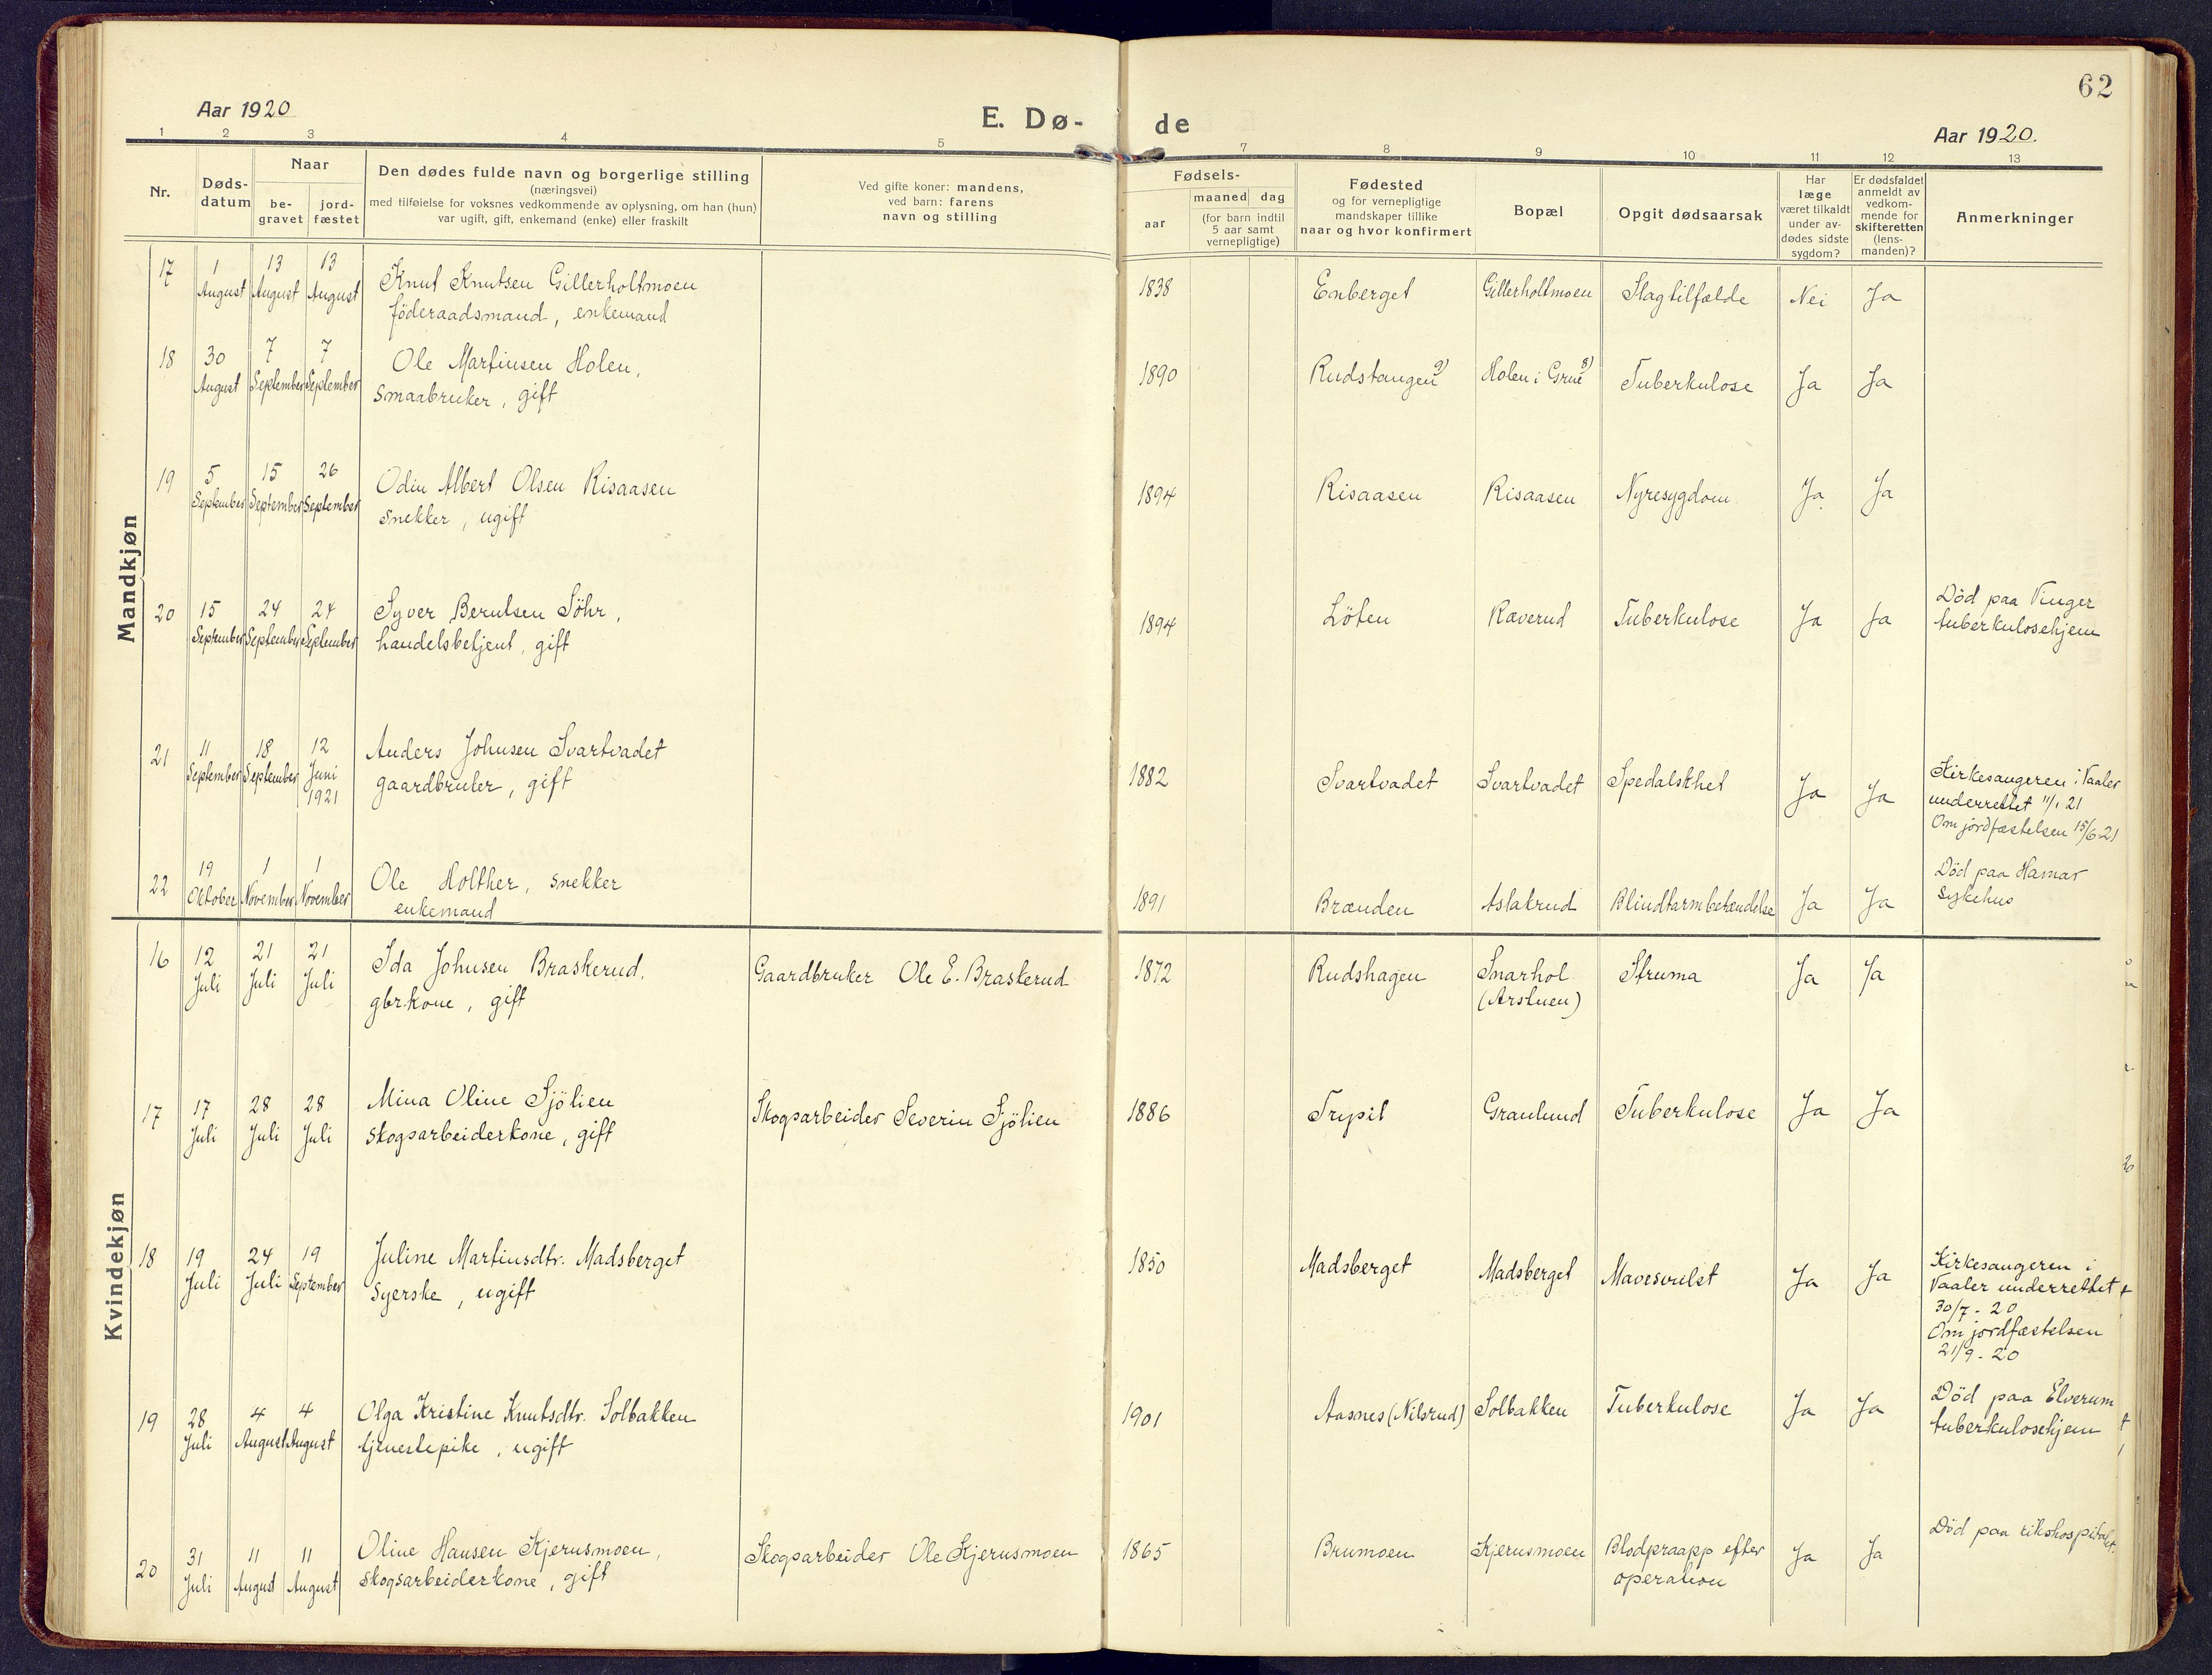 62
Aar 1920
E. Dø-
de
Aar 1920.
1 2 3 4 5 7 8 9 10 11 12 13
Nr.
Døds-
datum
Naar
be-
gravet
jord-
fæstet
Den dødes fulde navn og borgerlige stilling
(næringsvei)
med tilføielse for voksnes vedkommende av oplysning, om han (hun)
var ugift, gift, enkemand (enke) eller fraskilt
Ved gifte koner: mandens,
ved barn: farens
navn og stilling
Fødsels-
aar
maaned dag
(for barn indtil
5 aar samt
vernepligtige)
Fødested
og for vernepligtige
mandskaper tillike
naar og hvor konfirmert
Bopæl
Opgit dødsaarsak
Har
læge
været tilkaldt
under av-
dødes sidste
sygdom?
Er dødsfaldet
anmeldt av
vedkom-
mende for
skifteretten
(lens-
manden)?
Anmerkninger
Mandkjøn
17 1 13 13 Knut Knutsen Gillerholtmoen 1838 Enberget Gillerholtmoen Slagtilfælde Nei Ja
August August August föderaadsmand, enkemand
18 30 7 7 Ole Martinsen Holen, 1890 Rudstangen 9) Holen i Grue 8) Tuberkulose Ja Ja
August September September smaabruker, gift
19 5 15 26 Odin Albert Olsen Risaasen 1894 Risaasen Risaasen Nyresygdom Ja Ja
September September September snekker, ugift
20 15 24 24 Syver Berntsen Söhr, 1894 Löten Raverud Tuberkulose Ja Ja Död paa Vinger
September September September handelsbetjent, gift tuberkulosehjem
21 11 18 12 Anders Johnsen Svartvadet 1882 Svartvadet Svartvadet Spedalskhet Ja Ja Kirkesangeren i Vaaler
September September Juni gaardbruker, gift underrettet 11/1 21
1921 Om jordfæstelsen 15/6-21
22 19 1 1 Ole Holther, snekker 1891 Brænden Aslakrud Blindtarmbetændelse Ja Ja Död paa Hamar
Oktober November November enkemand sykehus
Kvindekjøn
16 12 21 21 Ida Johnsen Braskerud, Gaardbruker Ole E. Braskerud 1872 Rudshagen Snarhol Struma Ja Ja
Juli Juli Juli gbr.kone, gift (Arstuen)
17 17 28 28 Mina Oline Sjölien Skogsarbeider Severin Sjölien 1886 Trysil Granlund Tuberkulose Ja Ja
Juli Juli Juli skogsarbeiderkone, gift
18 19 24 19 Juline Martinsdtr. Madsberget 1850 Madsberget Madsberget Mavesvulst Ja Ja Kirkesangeren i
Juli Juli September syerske, ugift Vaaler underrettet
30/7 - 20
Om jordfæstelsen
21/9 - 20
19 28 4 4 Olga Kristine Knutsdtr. Solbakken 1901 Aasnes (Nilsrud) Solbakken Tuberkulose Ja Ja Död paa Elverum
Juli August August tjenestepike, ugift tuberkulosehjem
20 31 11 11 Oline Hansen Kjernsmoen, Skogsarbeider Ole Kjernsmoen 1865 Brumoen Kjernsmoen Blodpraapp efter Ja Ja Död paa rikshospitalet.
Juli August August skogsarbeiderkone, gift operation